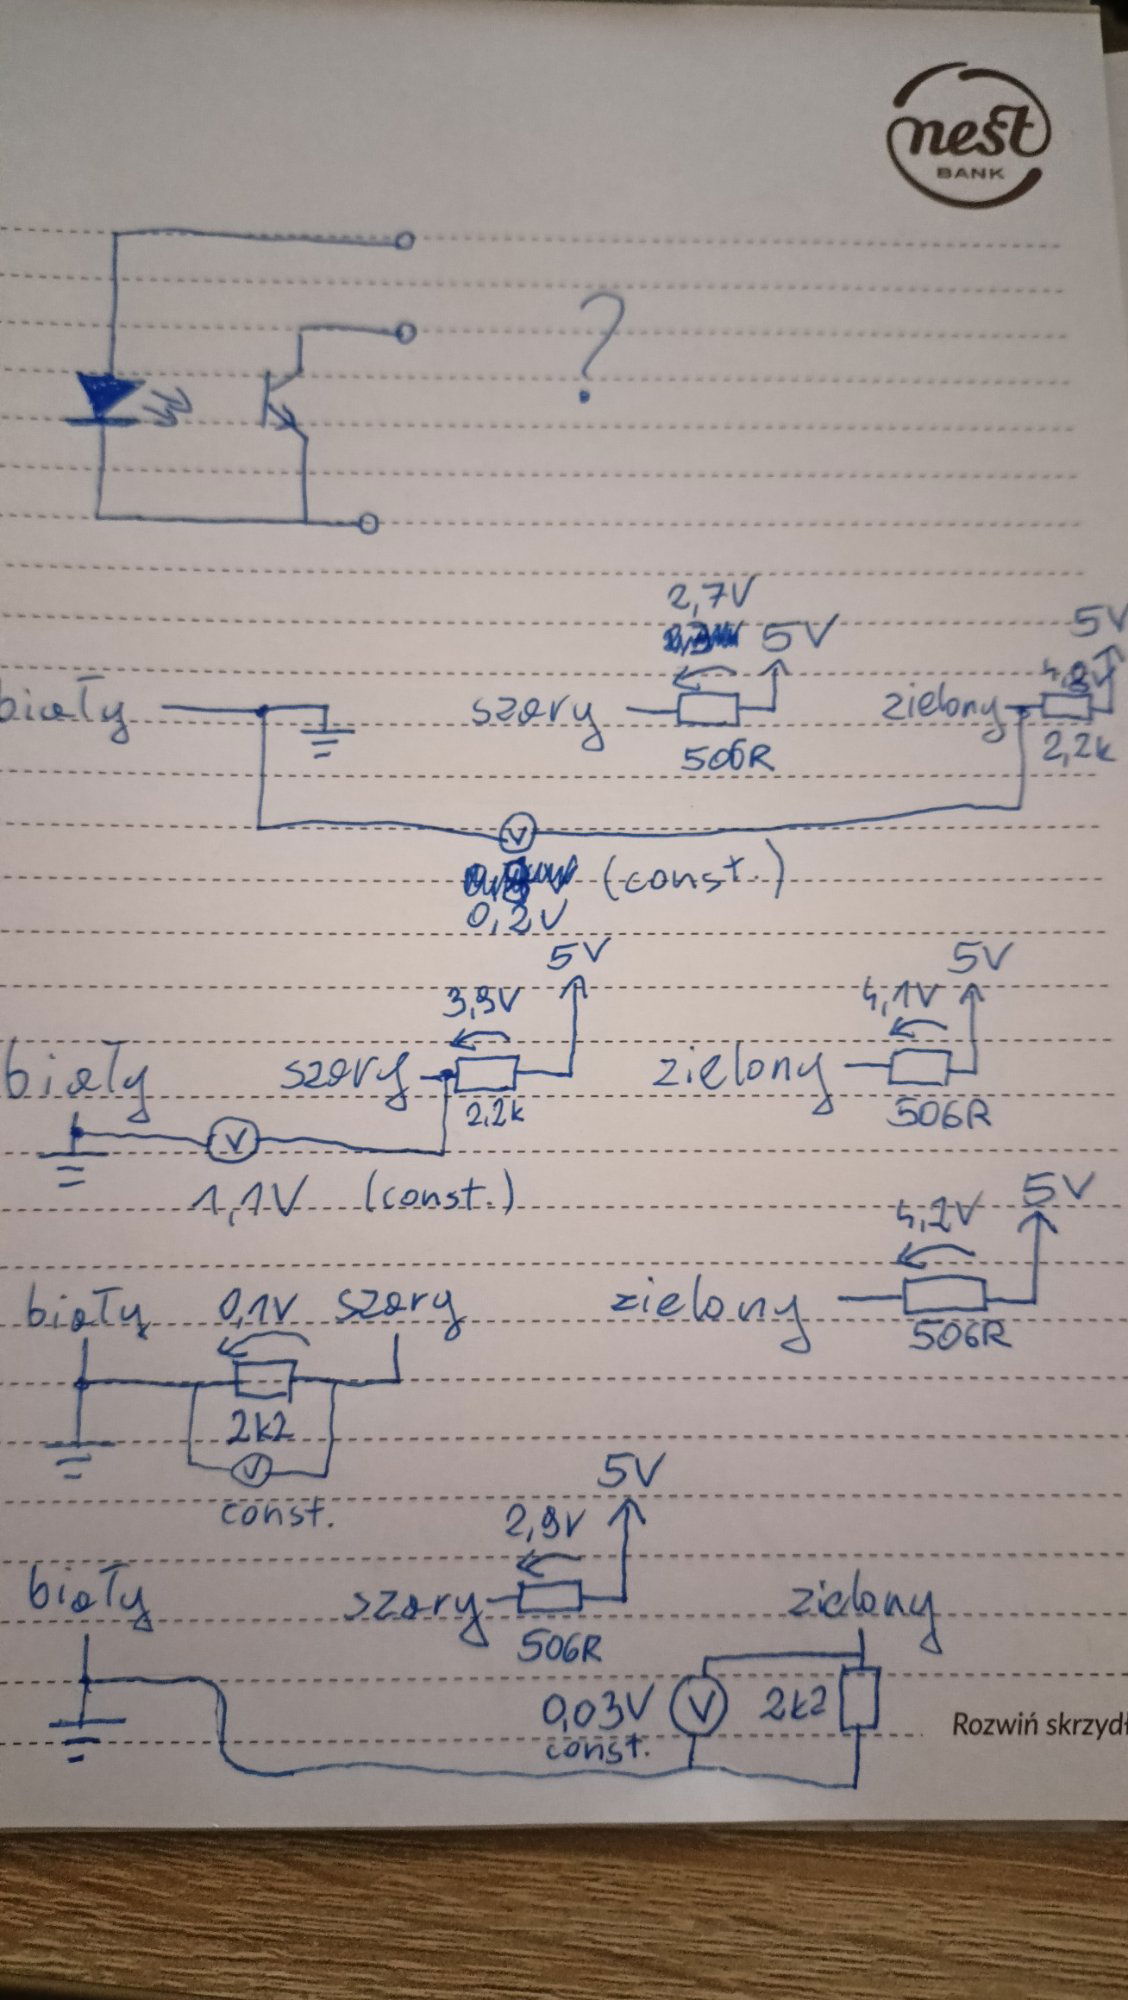 nest
BANK
?
2,7V
5V
5V
biały
szary
zielony
4,8V
506R
2,2k
V
(const.)
0,2V
5V
5V
3,9V
4,1V
biały
szary
zielony
2,2k
506R
V
1,1V (const.)
5V
4,2V
biały
0,1V
szary
zielony
506R
2k2
V
const.
5V
2,9V
biały
szary
zielony
506R
0,03V
V
2k2
const.
Rozwiń